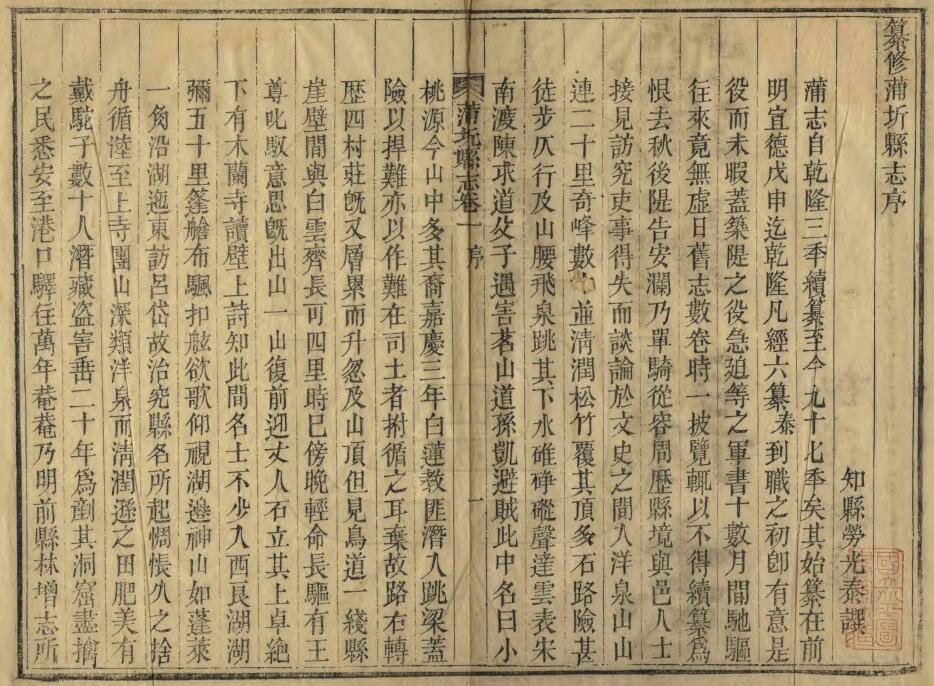 纂修蒲圻縣志序
知縣勞光泰譔
蒲志自乾隆三季續纂至今九十七季矣其始纂在前
明宣德戊申迄乾隆凡經六纂泰到職之初卽有意是
役而未暇蓋築隄之役急廹等之軍書十數月間馳驅
徃來竟無虛日舊志數卷時一披覽輒以不得續纂爲
恨去秋後隄告安瀾乃單騎從容周歷縣境與邑人士
接見訪究吏事得失而談論於文史之間入洋泉山山
連二十里奇峰數 並淸潤松竹覆其頂多石路險甚
徒步仄行及山腰飛泉跳其下水碓砰礚聲達雲表宋
南渡陳求道父子遇害茗山道孫凱避賊此中名曰小
蒲圻縣志卷一 序 一
桃源今山中多其裔嘉慶三年白蓮教匪潛入跳梁蓋
險以捍難亦以作難在司土者拊循之耳棄故路右轉
歴四村莊旣又層累而升忽及山頂但見鳥道一綫縣
崖壁間與白雲齊長可四里時已傍晚輕命長驅有王
尊叱馭意思旣出山一山復前迎丈人石立其上卓絶
下有木蘭寺讀壁上詩知此間名士不少入西良湖湖
彌五十里篷艪布颿扣舷欲歌仰視湖邊神山如蓬萊
一角沿湖迤東訪呂岱故治究縣名所起惆悵久之捨
舟循陸至上寺團山深類洋泉而淸潤遜之田肥美有
戴駝子數十人潛藏盜害垂二十年爲剷其洞窟盡擒
之民悉安至港口驛任萬年菴菴乃明前縣林增志所